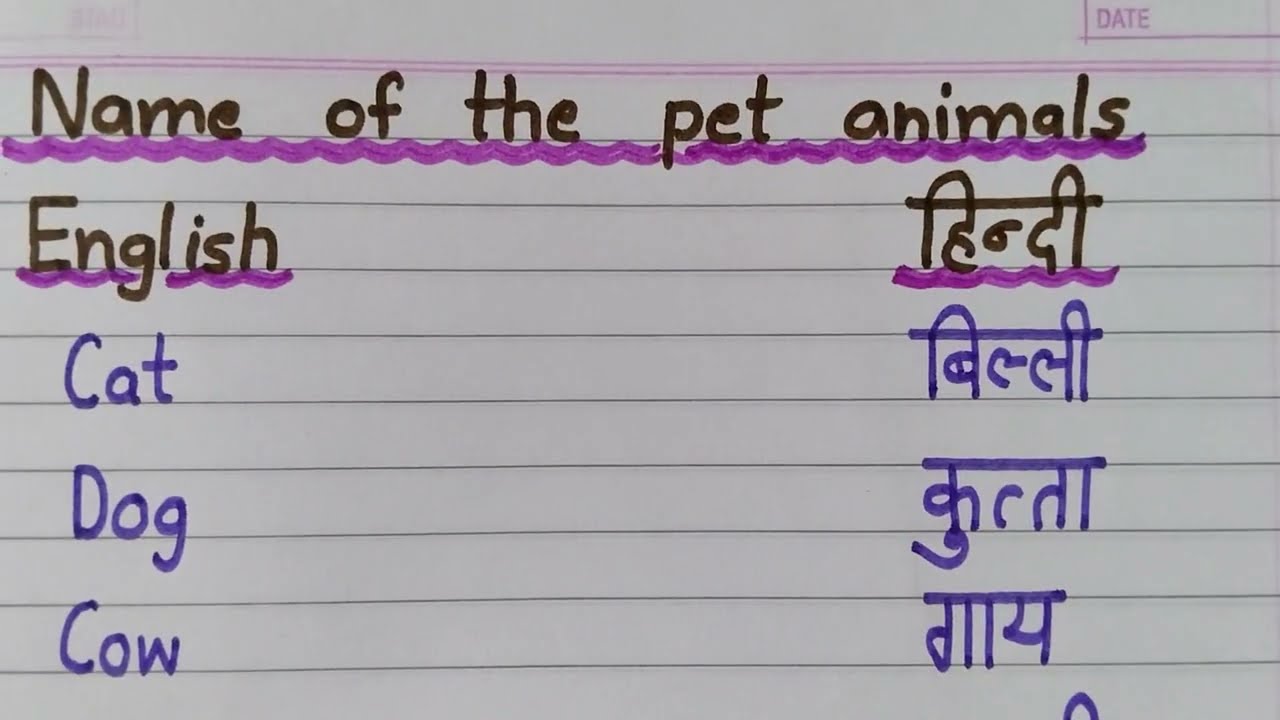 DATE
Name of the pet animals
English हिन्दी
Cat बिल्ली
Dog कुत्ता
Cow गाय